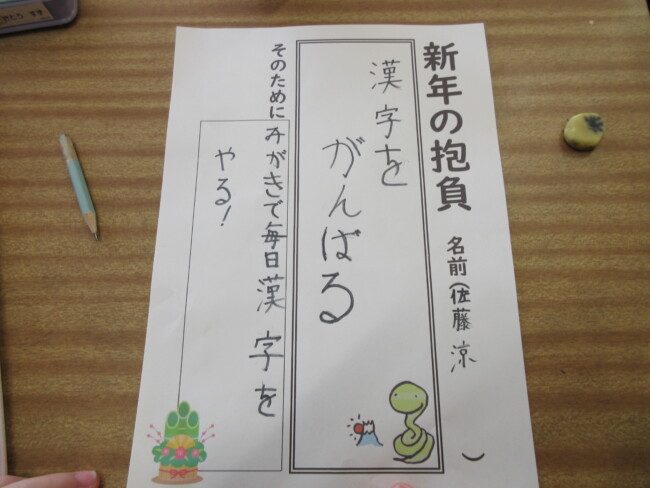 新年の抱負
名前(佐藤 涼)
漢字を
がんばる
そのためにみがきで毎日漢字を
やる!